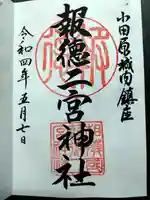 小田原城内鎮座
報徳二宮神社
令和四年五月七日